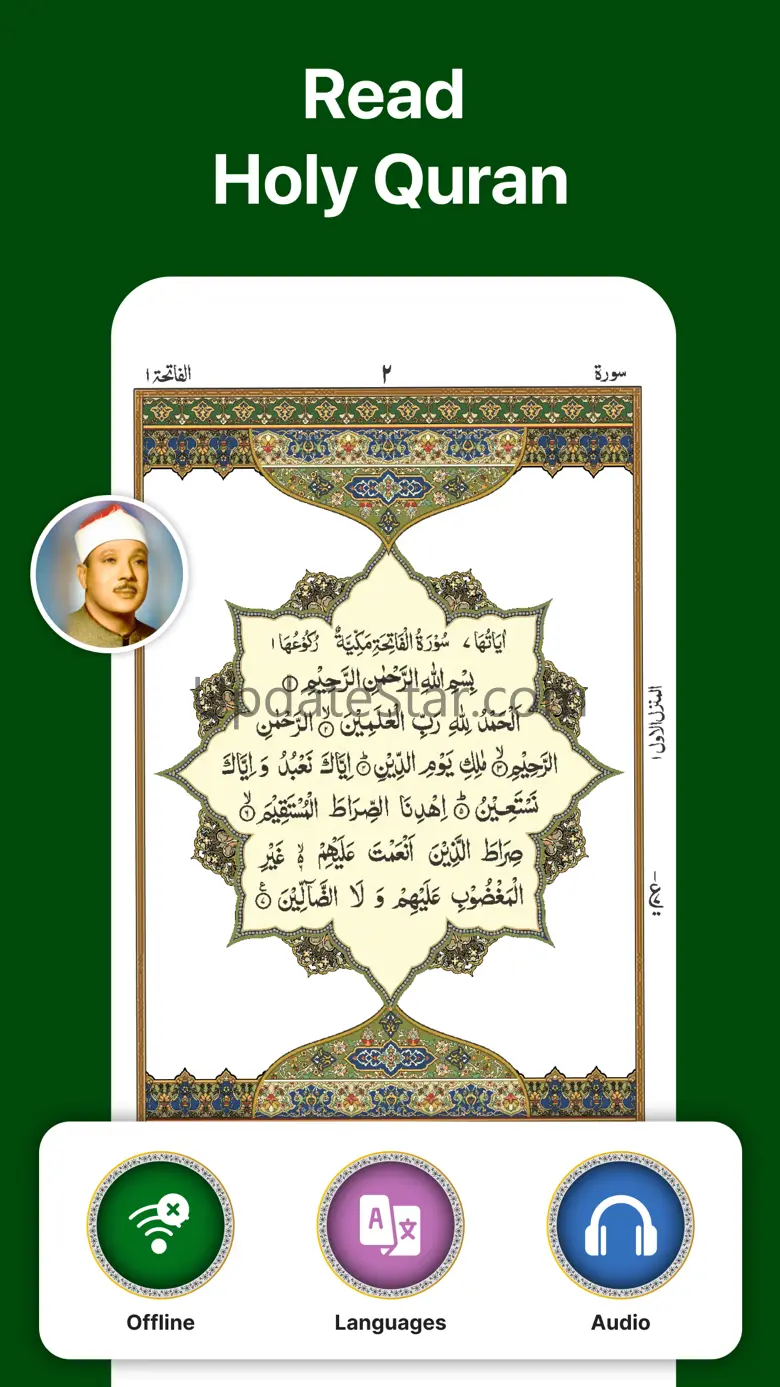 Read
Holy Quran
سورة ٢ الفاتحة ١
اٰيَاتُهَا ٧ سُوْرَةُ الْفَاتِحَةِ مَكِّيَّةٌ رُكُوْعُهَا ١
بِسْمِ اللهِ الرَّحْمٰنِ الرَّحِيْمِ ١
UpdateStar.com
اَلْحَمْدُ لِلّٰهِ رَبِّ الْعٰلَمِيْنَ ٢ الرَّحْمٰنِ
الرَّحِيْمِ ٣ مٰلِكِ يَوْمِ الدِّيْنِ ٤ اِيَّاكَ نَعْبُدُ وَ اِيَّاكَ
نَسْتَعِيْنُ ٥ اِهْدِنَا الصِّرَاطَ الْمُسْتَقِيْمَ ٦
صِرَاطَ الَّذِيْنَ اَنْعَمْتَ عَلَيْهِمْ غَيْرِ
الْمَغْضُوْبِ عَلَيْهِمْ وَ لَا الضَّآلِّيْنَ ٧
المنزل الاول ١
Offline
Languages
Audio